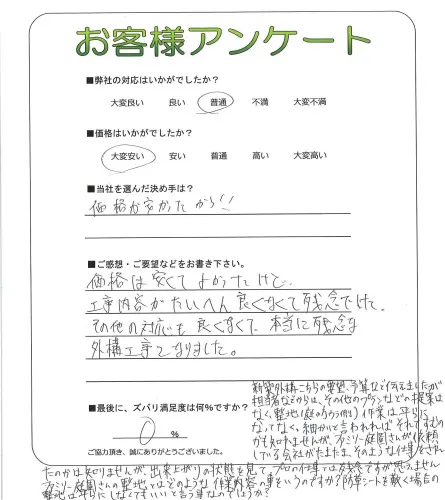 お客様アンケート
■弊社の対応はいかがでしたか?
大変良い 良い 普通 不満 大変不満
■価格はいかがでしたか?
大変安い 安い 普通 高い 大変高い
■当社を選んだ決め手は?
価格が安かったから!!
■ご感想・ご要望などをお書き下さい。
価格は安くてよかったけど、
工事内容がたいへん良くなくて残念でした。
その他の対応も良くなくて、本当に残念な
外構工事となりました。
■最後に、ズバリ満足度は何%ですか?
0%
ご協力頂き、誠にありがとうございました。
新築外構こちらの要望、予算など伝えましたが
担当者などからは、その他のプランなどの提案は
なく、整地(庭のうら側)作業は平らに
なってなく、細かいと言われればそれですむの
かも知れませんが、ファミリー庭園さんが依頼
している会社がたまたま、そのような仕事をされ
たのかは知りませんが、出来上がりの状態を見て、プロの仕事では残念ですが思えません
ファミリー庭園さんの整地ではどのような作業内容の事をいうのですか?防草シートを敷く場合の
整地は平らにしなくてもいいと言う事なのでしょうか?